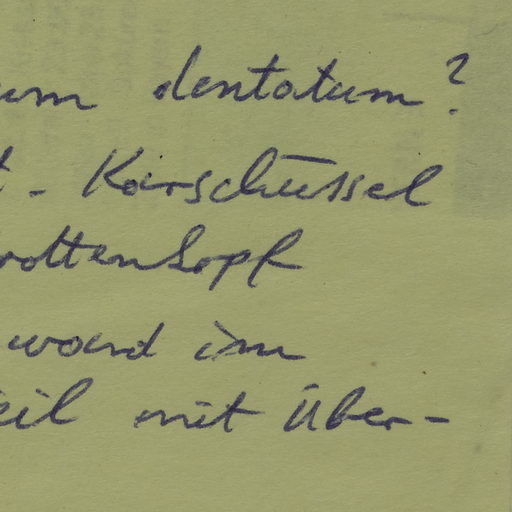 um dentatum?
t - Karschüssel
rottenkopf
wand im
eil mit Über-